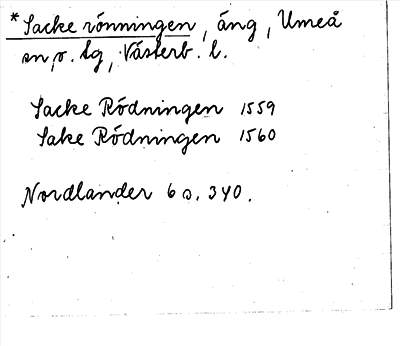 * Sacke rönningen, äng, Umeå
sn o. tg, Västerb. l.
Sacke Rödningen 1559
Sake Rödningen 1560
Nordlander 6 s. 340.